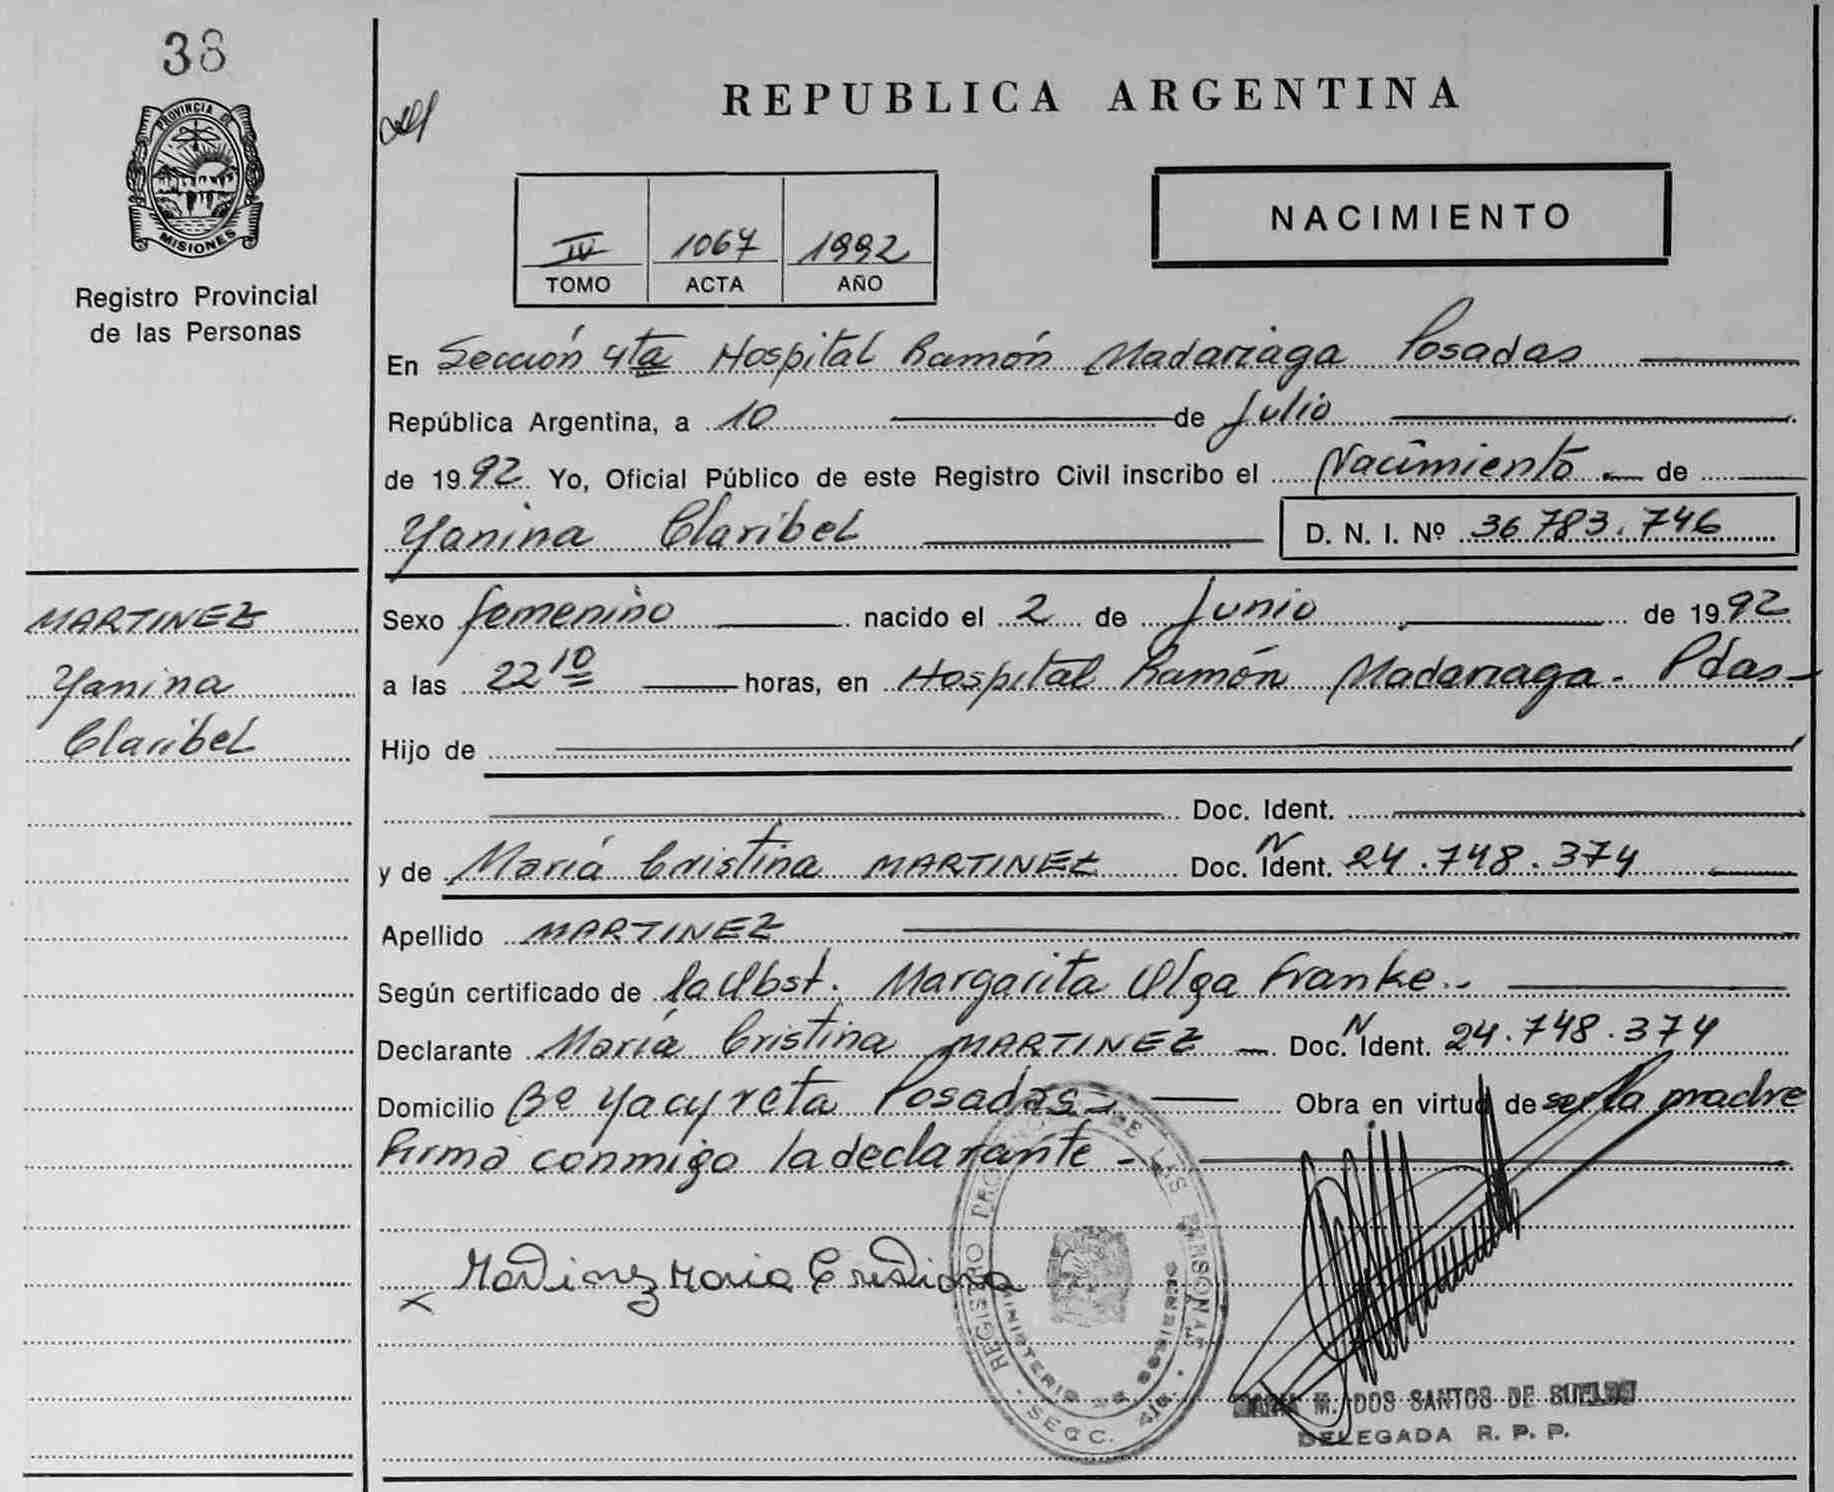 38
PROVINCIA DE
MISIONES
Registro Provincial
de las Personas
REPUBLICA ARGENTINA
IV 1067 1992
TOMO ACTA AÑO
NACIMIENTO
En Sección 4ta Hospital Ramón Madariaga Posadas
República Argentina, a 10 de Julio
de 1992 Yo, Oficial Público de este Registro Civil inscribo el Nacimiento de
Yanina Claribel D. N. I. Nº 36 783.746
MARTINEZ
Yanina
Claribel
Sexo femenino nacido el 2 de Junio de 1992
a las 22 10 horas, en Hospital Ramón Madariaga - Pdas -
Hijo de
Doc. Ident.
y de María Cristina MARTINEZ Doc. N Ident. 24.748.374
Apellido MARTINEZ
Según certificado de la Obst. Margarita Olga Franke.-
Declarante María Cristina MARTINEZ - Doc. N Ident. 24.748.374
Domicilio Bº Yacyreta Posadas - Obra en virtud de ser la madre
firma conmigo la declarante -
x Martinez Maria Cristina
REGISTRO DE LAS PERSONAS
MINISTERIO DE GOBIERNO
SECC. 4ta.
M. DOS SANTOS DE
DELEGADA R. P. P.